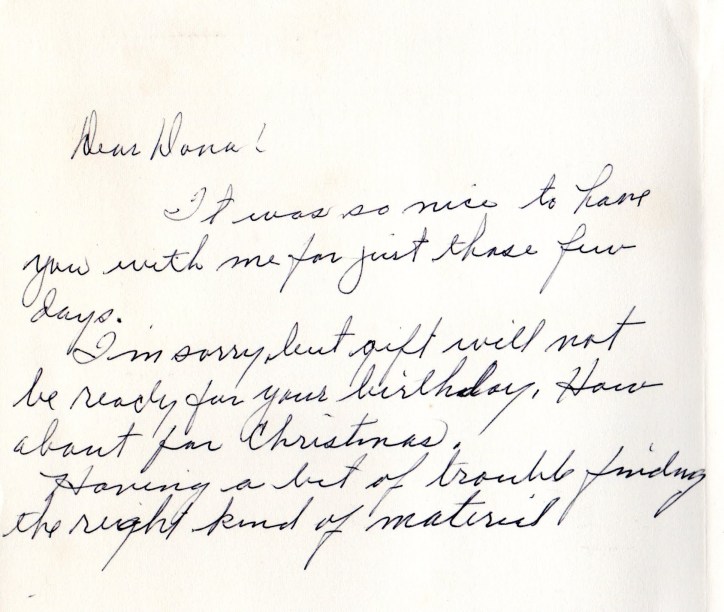 Dear Dona!
It was so nice to have
you with me for just those few
days.
I'm sorry, but gift will not
be ready for your birthday. How
about for Christmas.
Having a bit of trouble finding
the right kind of material